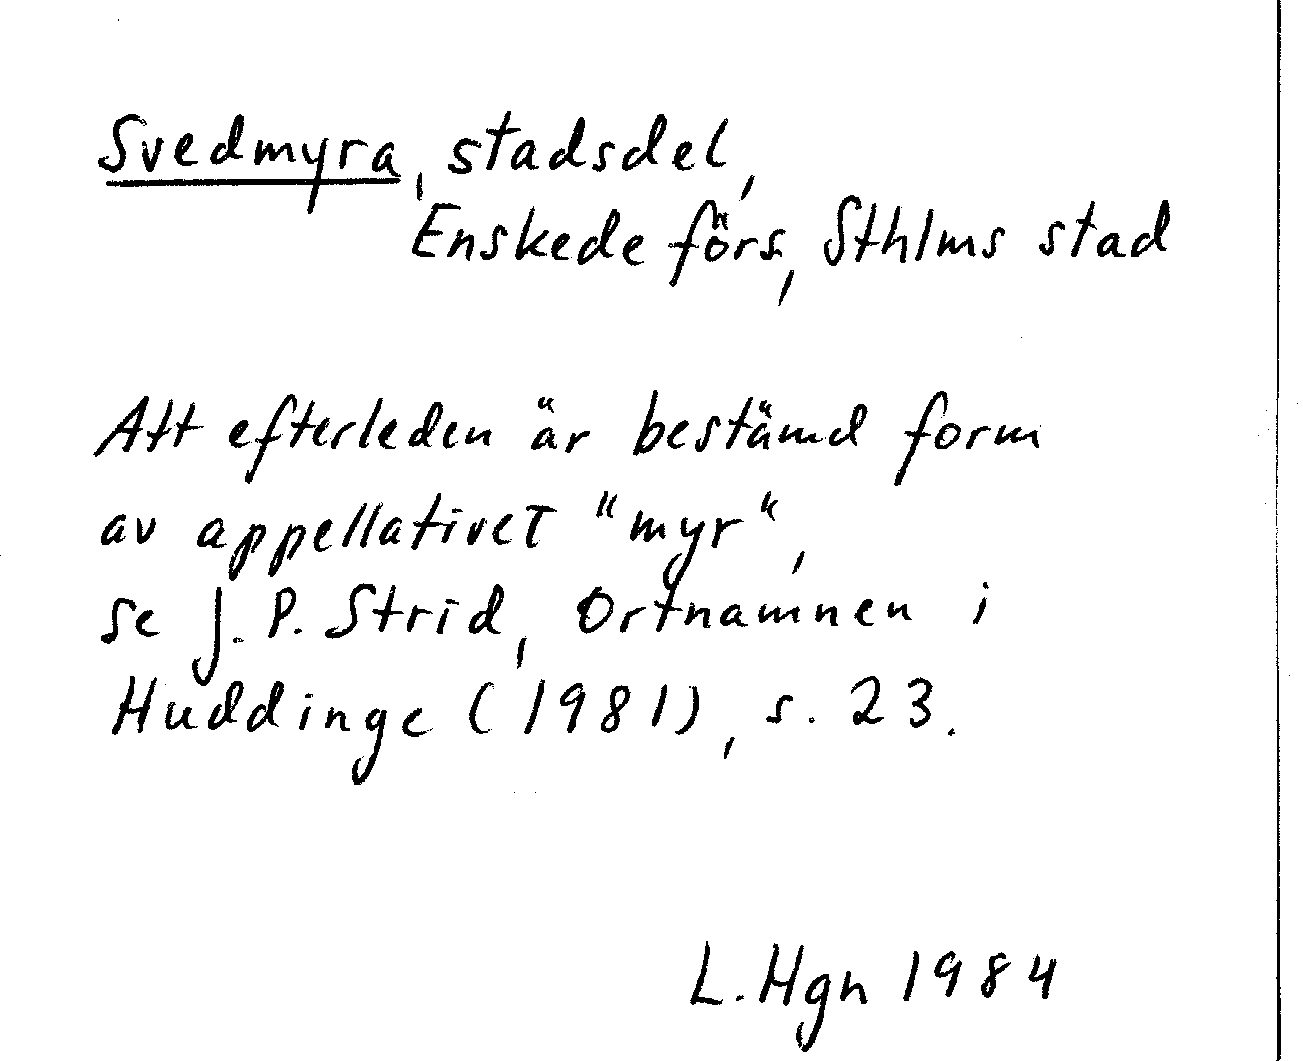 Svedmyra, stadsdel,
Enskede förs, Sthlms stad
Att efterleden är bestämd form
av appellativet "myr",
se J. P. Strid, Ortnamnen i
Huddinge (1981), s. 23.
L. Hgn 1984